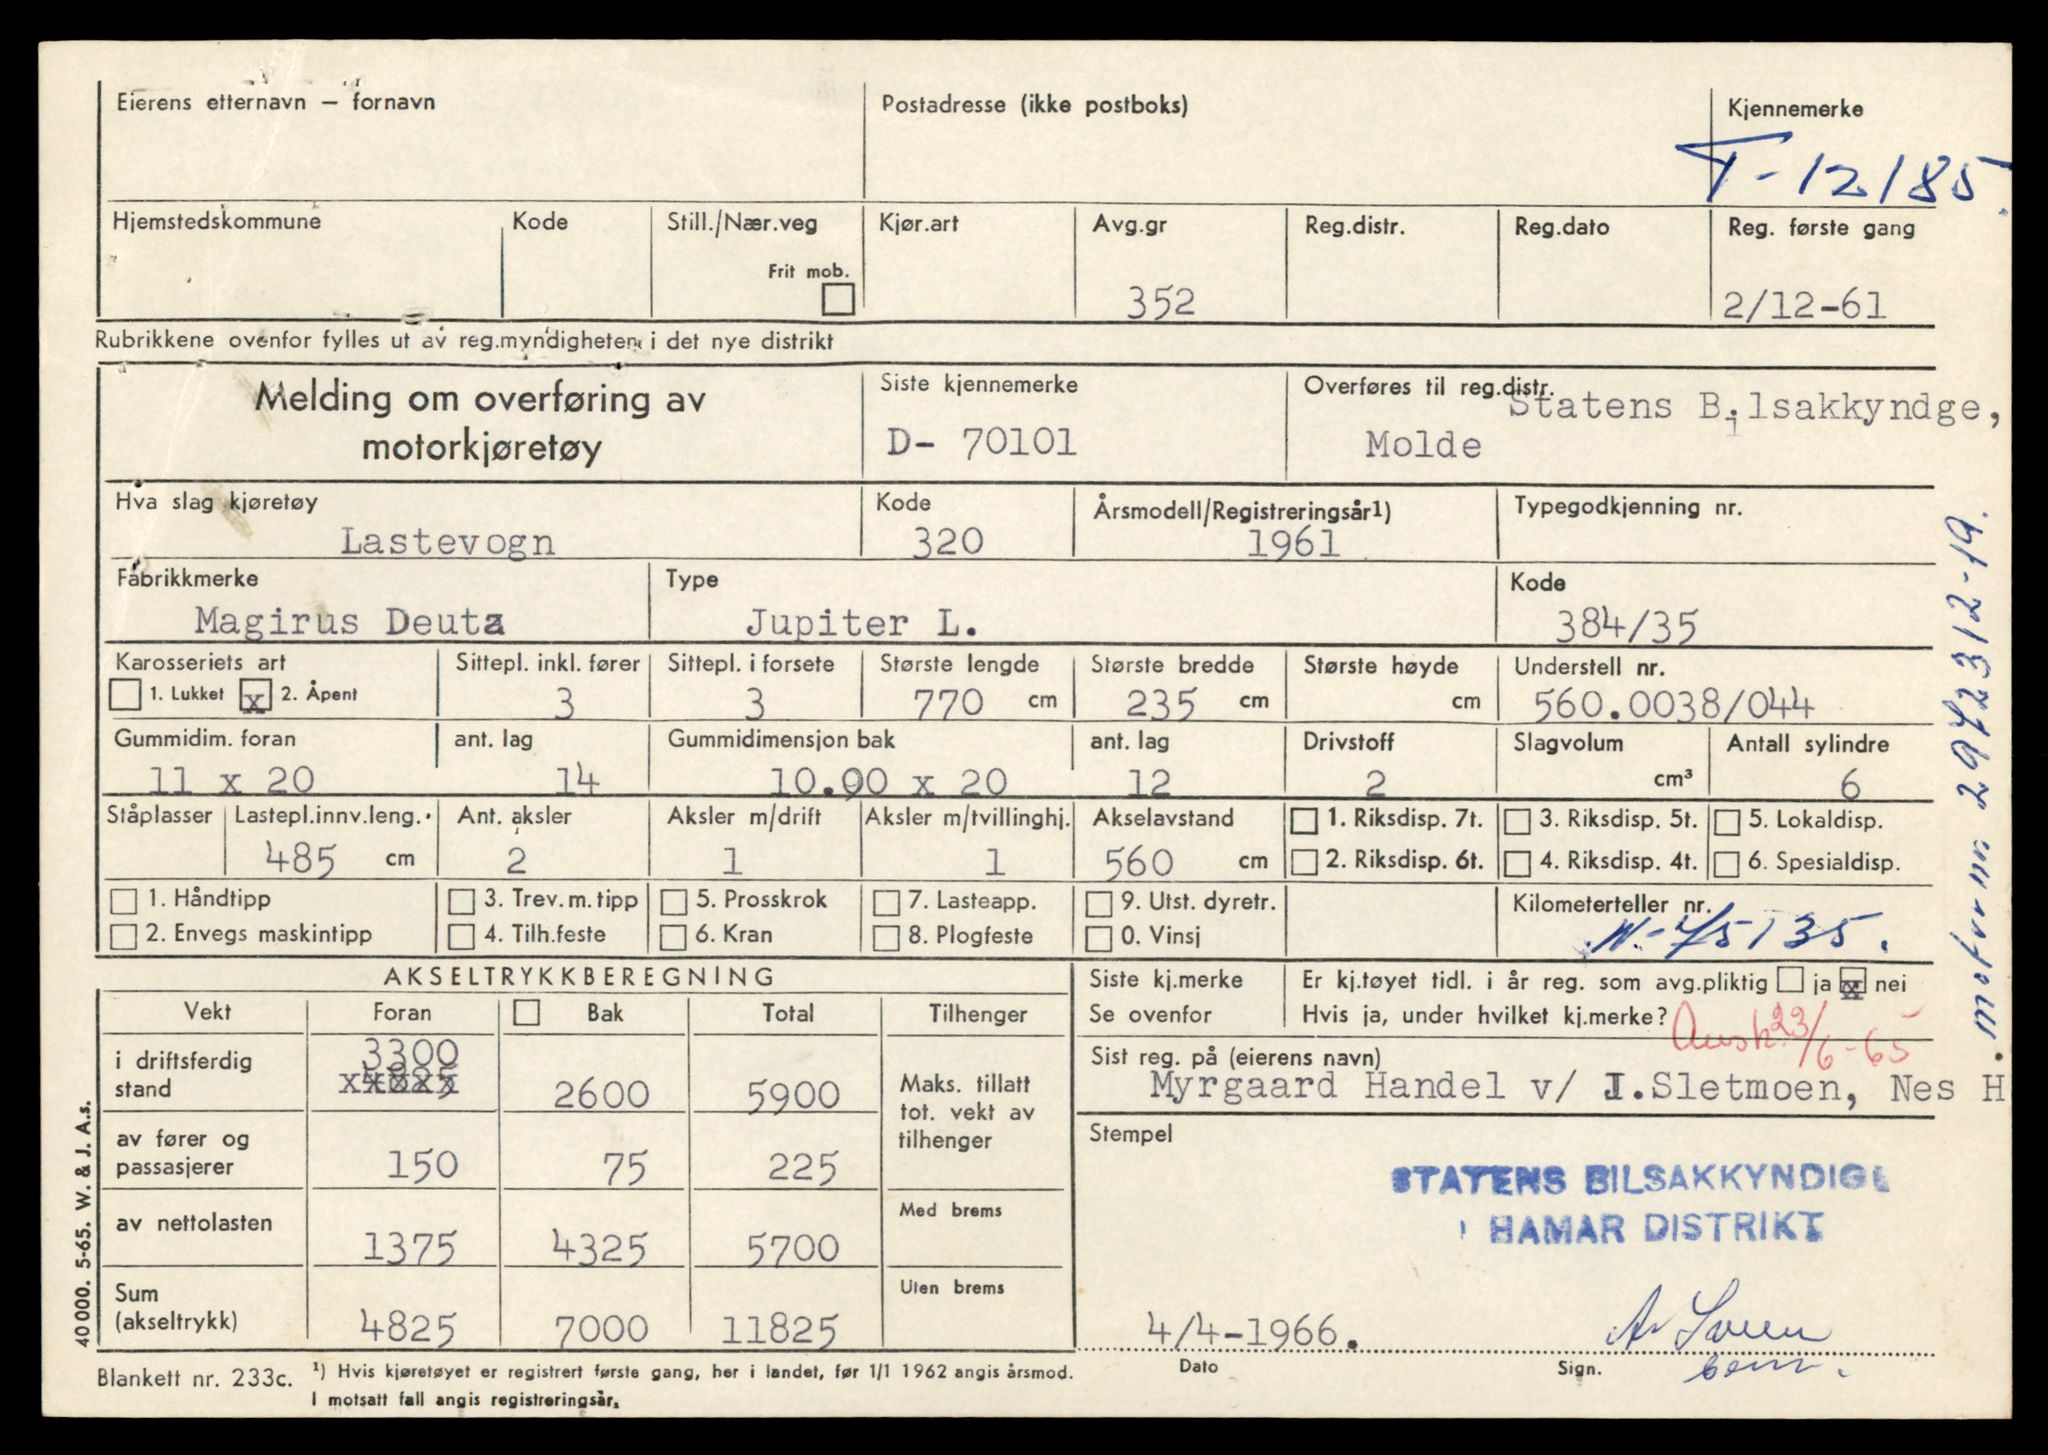 Eierens etternavn — fornavn
Postadresse (ikke postboks)
Kjennemerke
T-12185.
Hjemstedskommune
Kode
Still./Nær.veg
Frit mob.
Kjør.art
Avg.gr
352
Reg.distr.
Reg.dato
Reg. første gang
2/12-61
Rubrikkene ovenfor fylles ut av reg.myndigheten i det nye distrikt
Melding om overføring av
motorkjøretøy
Siste kjennemerke
D- 70101
Overføres til reg.distr.
Statens Bilsakkyndge,
Molde
Hva slag kjøretøy
Lastevogn
Kode
320
Årsmodell/Registreringsår1)
1961
Typegodkjenning nr.
Fabrikkmerke
Magirus Deutz
Type
Jupiter L.
Kode
384/35
Karosseriets art
1. Lukket x 2. Åpent
Sittepl. inkl. fører
3
Sittepl. i forsete
3
Største lengde
770 cm
Største bredde
235 cm
Største høyde
cm
Understell nr.
560.0038/044
Gummidim. foran
11 x 20
ant. lag
14
Gummidimensjon bak
10.00 x 20
ant. lag
12
Drivstoff
2
Slagvolum
cm³
Antall sylindre
6
Ståplasser
Lastepl.innv.leng.
485 cm
Ant. aksler
2
Aksler m/drift
1
Aksler m/tvillinghj.
1
Akselavstand
560 cm
1. Riksdisp. 7t.
2. Riksdisp. 6t.
3. Riksdisp. 5t.
4. Riksdisp. 4t.
5. Lokaldisp.
6. Spesialdisp.
1. Håndtipp
2. Envegs maskintipp
3. Trev. m. tipp
4. Tilh.feste
5. Prosskrok
6. Kran
7. Lasteapp.
8. Plogfeste
9. Utst. dyretr.
0. Vinsj
Kilometerteller nr.
N-75135.
motor nr 2972312-19.
AKSELTRYKKBEREGNING
Vekt
Foran
Bak
Total
Tilhenger
i driftsferdig
stand
3300
2600
5900
Maks. tillatt
tot. vekt av
tilhenger
av fører og
passasjerer
150
75
225
av nettolasten
1375
4325
5700
Med brems
Sum
(akseltrykk)
4825
7000
11825
Uten brems
Siste kj.merke
Se ovenfor
Er kj.tøyet tidl. i år reg. som avg.pliktig ja x nei
Hvis ja, under hvilket kj.merke?
Avsk. 23/6-65
Sist reg. på (eierens navn)
Myrgaard Handel v/ I.Sletmoen, Nes H
Stempel
STATENS BILSAKKYNDIGE
I HAMAR DISTRIKT
4/4-1966.
Dato
Sign.
40 000. 5-65. W. & J. A.s.
Blankett nr. 233c.
1) Hvis kjøretøyet er registrert første gang, her i landet, før 1/1 1962 angis årsmod.
I motsatt fall angis registreringsår.